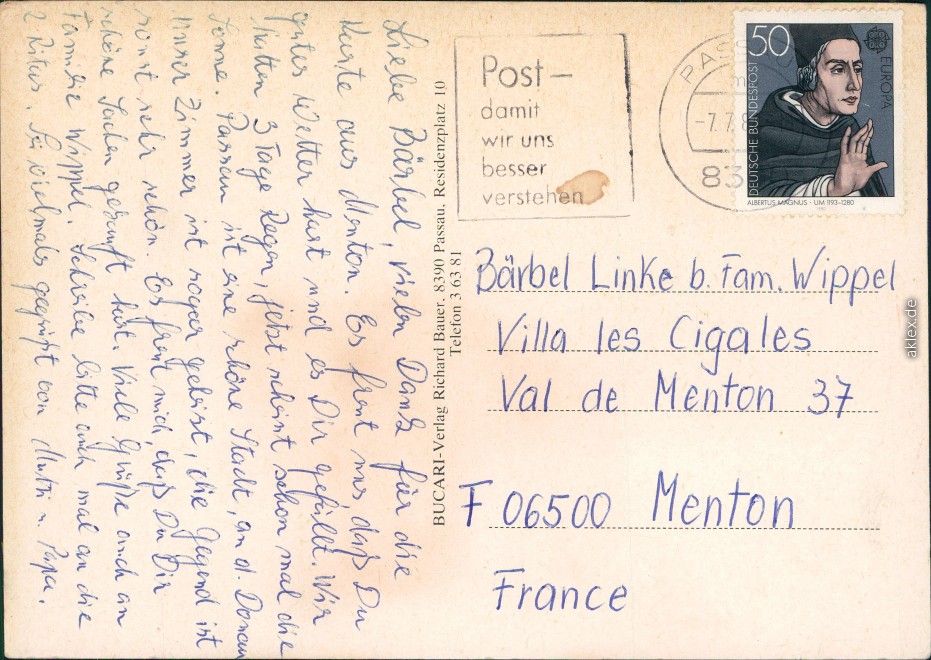 Liebe Bärbel, vielen Dank für die
Karte aus Menton. Es freut uns daß Du
gutes Wetter hast und es Dir gefällt. Wir
hatten 3 Tage Regen, jetzt scheint schon mal die
Sonne. Passau ist eine schöne Stadt, an d. Donau
Unser Zimmer ist sogar geheizt, die Gegend ist
sonst sehr schön. Es freut mich, daß Du Dir
schöne Sachen gekauft hast. Viele Grüße auch an
Familie Wippel. Schreibe bitte auch mal an die
2 Sei vielmals gegrüßt von Mutti u. Papa.
BUCARI-Verlag Richard Bauer, 8390 Passau, Residenzplatz 10
Telefon 3 63 81
Post–
damit
wir uns
besser
verstehen
PASS
-7.7.8
83
50
DEUTSCHE BUNDESPOST
EUROPA
ALBERTUS MAGNUS · UM 1193-1280
Bärbel Linke b. Fam. Wippel
Villa les Cigales
Val de Menton 37
F 06500 Menton
France
aklex.de